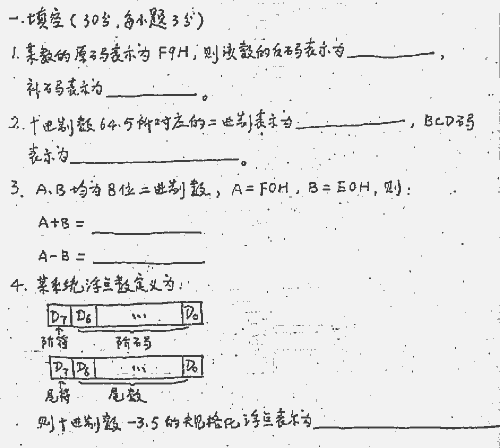 一.填空(30分,每小题3分)
1.某数的原码表示为F9H,则该数的反码表示为________,
补码表示为________。
2.十进制数64.5所对应的二进制表示为________,BCD码
表示为________。
3. A、B均为8位二进制数,A=F0H,B=E0H,则:
A+B=________
A-B=________
4.某系统浮点数定义为:
D7 D6 … D0
阶符 阶码
D7 D6 … D0
尾符 尾数
则十进制数-3.5的规格化浮点表示为________